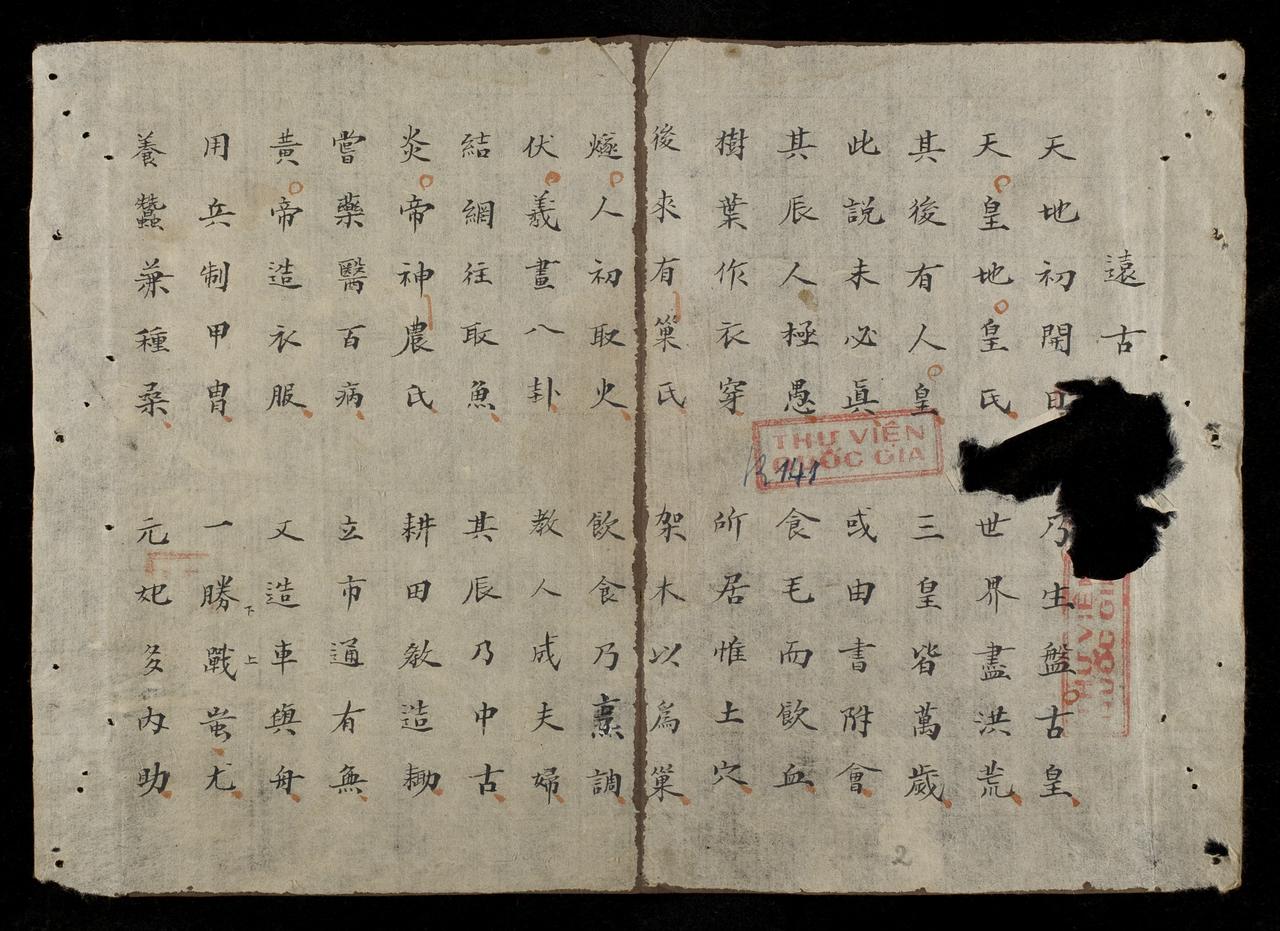 遠古
天地初開日 乃生盤古皇
天皇地皇氏 世界盡洪荒
其後有人皇 三皇皆萬歲
此說未必眞 或由書附會
其辰人極愚 食毛而飲血
樹葉作衣穿 所居惟土穴
後來有巢氏 架木以為巢
燧人初取火 飲食乃烹調
伏羲畫八卦 教人成夫婦
結網往取魚 其辰乃中古
炎帝神農氏 耕田敎造耡
嘗藥醫百病 立市通有無
黃帝造衣服 又造車與舟
用兵制甲冑 一勝戰蚩尤
下 上
養蠶兼種桑 元妃多內助
THƯ VIỆN
QUỐC GIA
R 141
THƯ VIỆN
QUỐC GIA
2